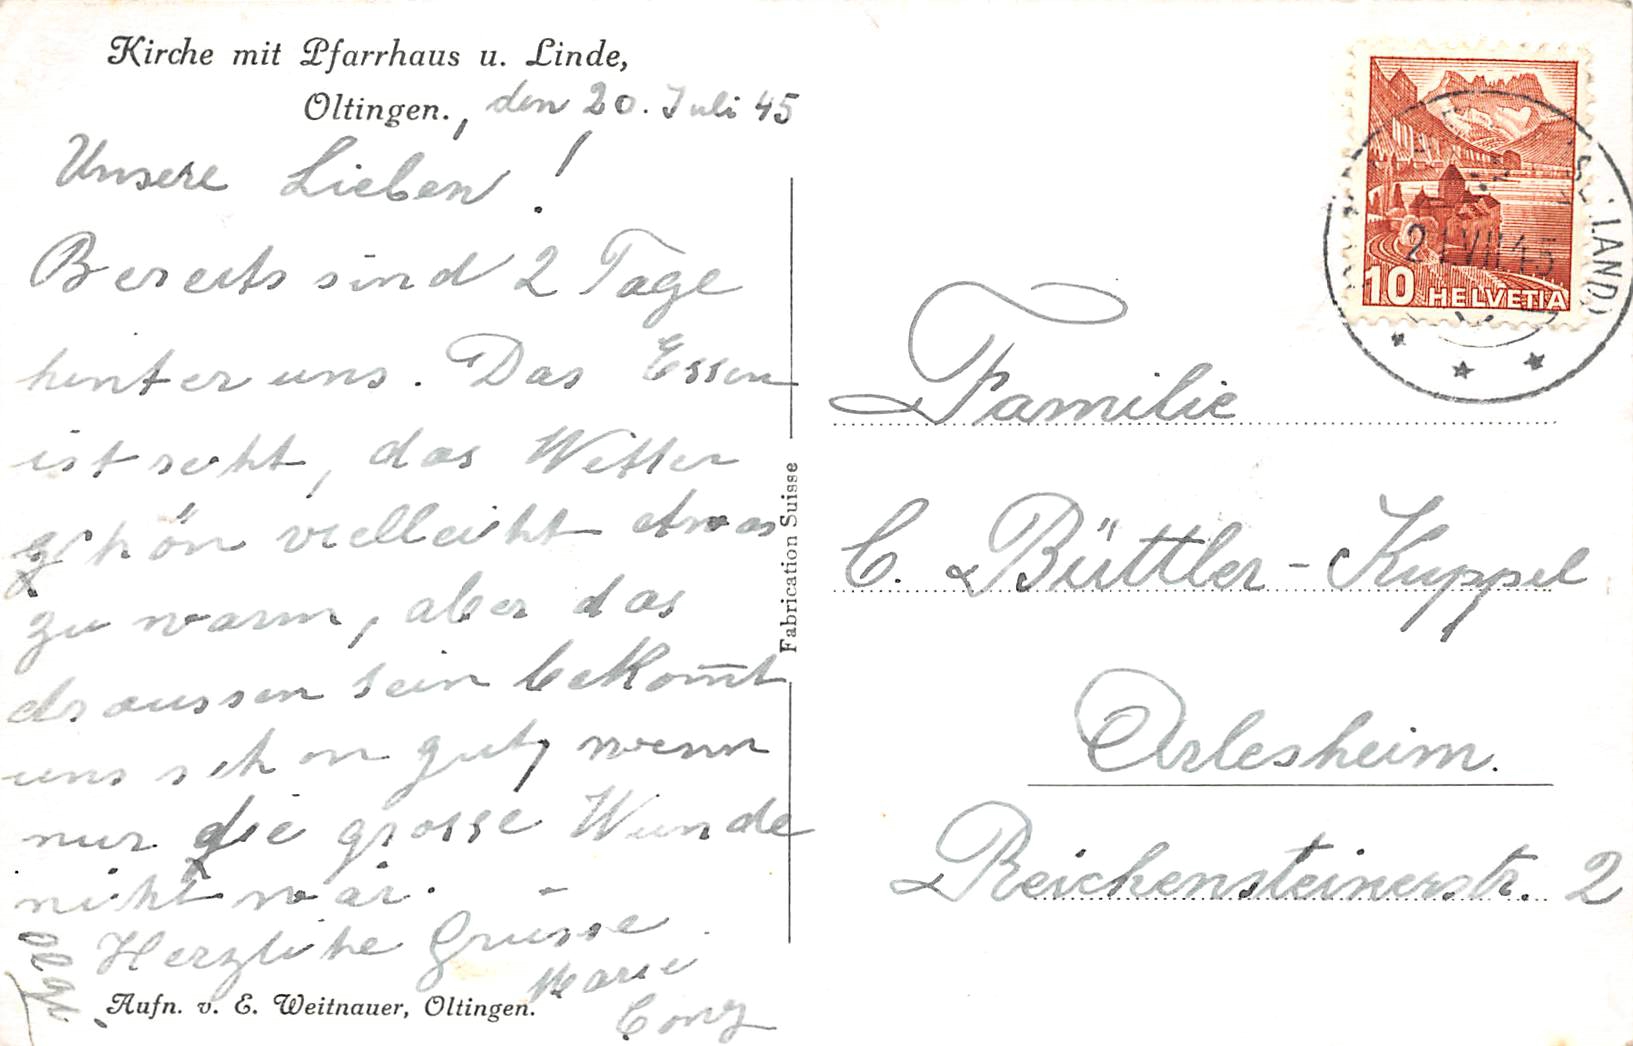 Kirche mit Pfarrhaus u. Linde,
Oltingen., den 20. Juli 45
Unsere Lieben!
Bereits sind 2 Tage
hinter uns. Das Essen
ist recht, das Wetter
schön vielleicht etwas
zu warm, aber das
draussen sein bekom̅t
uns schon gut, wenn
nur die grosse Wunde
nicht wär.
Herzliche Grüsse
Marie
Aufn. v. E. Weitnauer, Oltingen.
Fabrication Suisse
10 HELVETIA
21.VII.45
LAND)
Familie
C. Büttler-Kuppel
Arlesheim.
Reichensteinerstr. 2